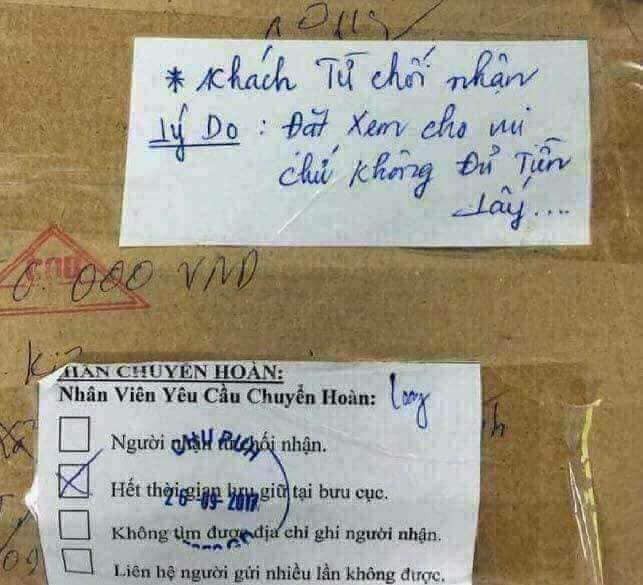 * Khách Từ chối nhận
Lý Do : Đặt xem cho vui
chứ không Đủ Tiền
Lấy....
000 VND
CHUYỂN HOÀN:
Nhân Viên Yêu Cầu Chuyển Hoàn: long
Người nhận từ chối nhận.
Hết thời gian lưu giữ tại bưu cục.
26-09-2017
Không tìm được địa chỉ ghi người nhận.
Liên hệ người gửi nhiều lần không được.